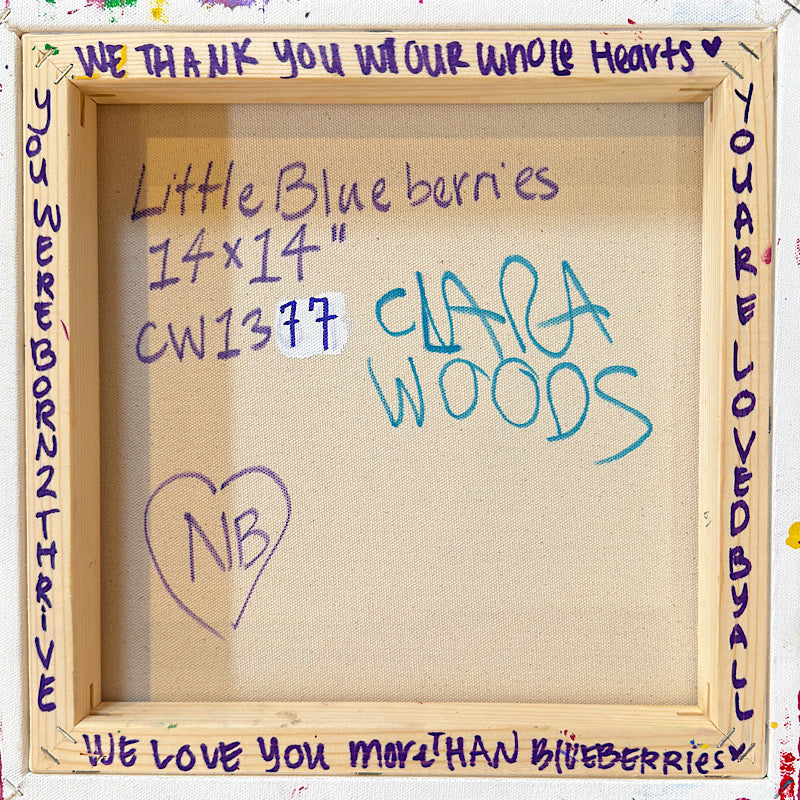 WE THANK YOU W/ OUR WHOLE HeArTS ♥
YOU WERE BORN 2 THRiVE
YOU ARE LOVED BY ALL
Little Blueberries
14x14"
CW1377
CLARA
WOODS
NB
WE LOVE YOU moreTHAN BlUEBERRies ♥